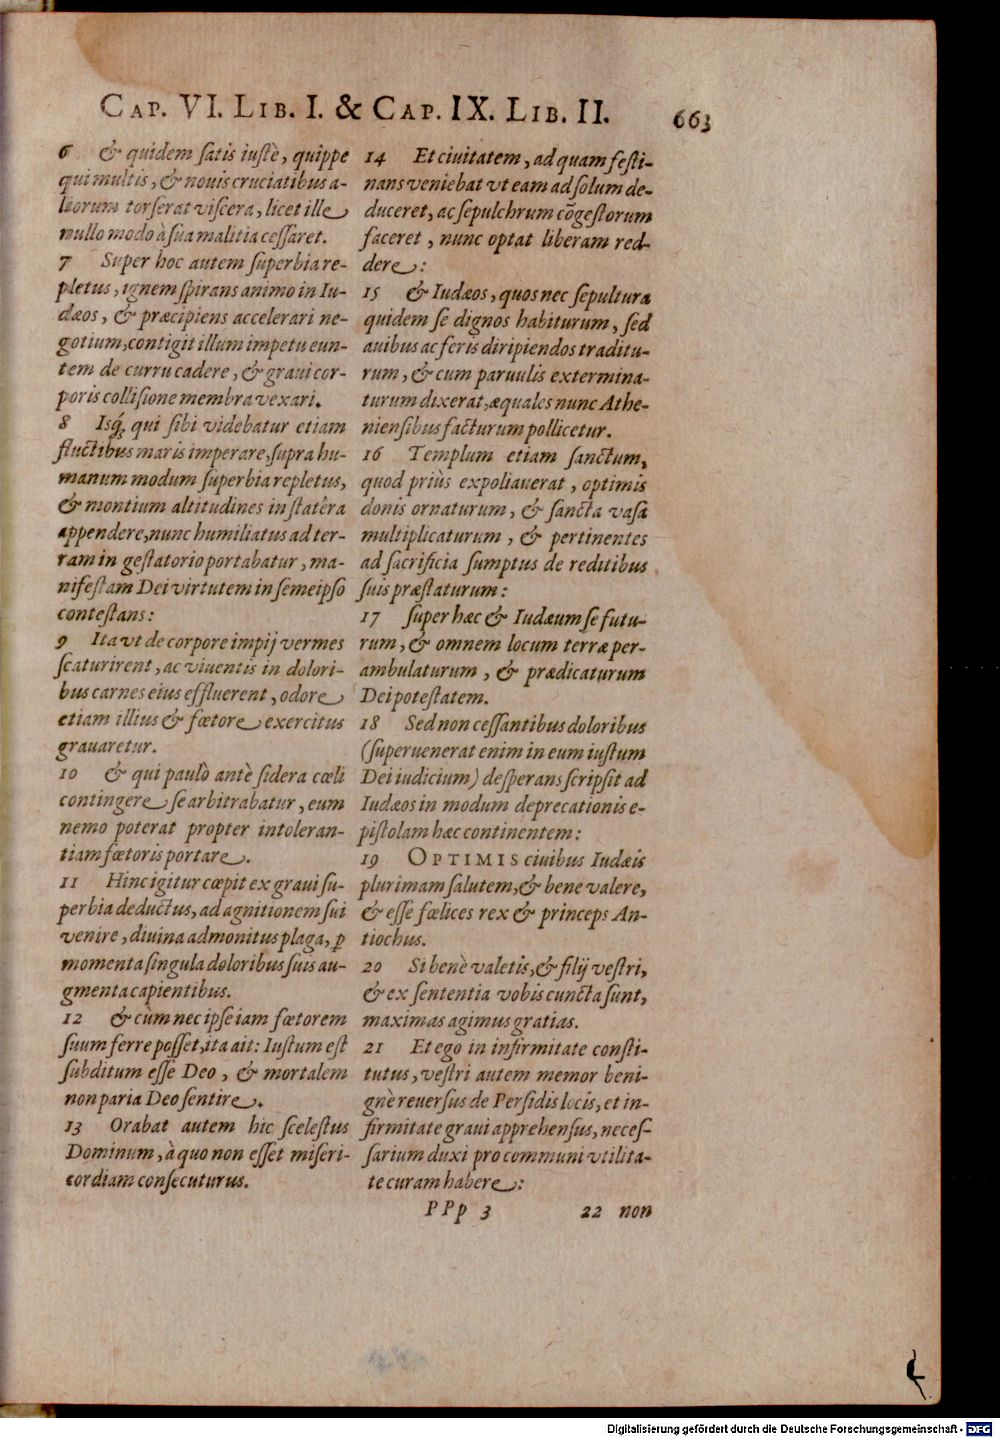 CAP. VI. LIB. I. & CAP. IX. LIB. II. 663
6 & quidem satis iustè, quippe
qui multis, & nouis cruciatibus a-
liorum torserat viscera, licet ille
nullo modo à sua malitia cessaret.
7 Super hoc autem superbia re-
pletus, ignem spirans animo in Iu-
dæos, & præcipiens accelerari ne-
gotium, contigit illum impetu eun-
tem de curru cadere, & graui cor-
poris collisione membra vexari.
8 Isq́ꝫ qui sibi videbatur etiam
fluctibus maris imperare, supra hu-
manum modum superbia repletus,
& montium altitudines in statêra
appendere, nunc humiliatus ad ter-
ram in gestatorio portabatur, ma-
nifestam Dei virtutem in semeipso
contestans:
9 Ita vt de corpore impij vermes
scaturirent, ac viuentis in dolori-
bus carnes eius effluerent, odore
etiam illius & fœtore exercitus
grauaretur.
10 & qui paulò antè sidera cœli
contingere se arbitrabatur, eum
nemo poterat propter intoleran-
tiam fœtoris portare.
11 Hinc igitur cœpit ex graui su-
perbia deductus, ad agnitionem sui
venire, diuina admonitus plaga, ꝑ
momenta singula doloribus suis au-
gmenta capientibus.
12 & cùm nec ipse iam fœtorem
suum ferre posset, ita ait: Iustum est
subditum esse Deo, & mortalem
non paria Deo sentire.
13 Orabat autem hic scelestus
Dominum, à quo non esset miseri-
cordiam consecuturus.
14 Et ciuitatem, ad quam festi-
nans veniebat vt eam ad solum de-
duceret, ac sepulchrum cõgestorum
faceret, nunc optat liberam red-
dere:
15 & Iudæos, quos nec sepultura
quidem se dignos habiturum, sed
auibus ac feris diripiendos traditu-
rum, & cum paruulis extermina-
turum dixerat, æquales nunc Athe-
niensibus facturum pollicetur.
16 Templum etiam sanctum,
quod priùs expoliauerat, optimis
donis ornaturum, & sancta vasa
multiplicaturum, & pertinentes
ad sacrificia sumptus de reditibus
suis præstaturum:
17 super hæc & Iudæum se futu-
rum, & omnem locum terræ per-
ambulaturum, & prædicaturum
Dei potestatem.
18 Sed non cessantibus doloribus
(superuenerat enim in eum iustum
Dei iudicium) desperans scripsit ad
Iudæos in modum deprecationis e-
pistolam hæc continentem:
19 OPTIMIS ciuibus Iudæis
plurimam salutem, & bene valere,
& esse fœlices rex & princeps An-
tiochus.
20 Si benè valetis, & filij vestri,
& ex sententia vobis cuncta sunt,
maximas agimus gratias.
21 Et ego in infirmitate consti-
tutus, vestri autem memor beni-
gnè reuersus de Persidis locis, et in-
firmitate graui apprehensus, neces-
sarium duxi pro communi vtilita-
te curam habere:
PPp 3 22 non
Digitalisierung gefördert durch die Deutsche Forschungsgemeinschaft - DFG